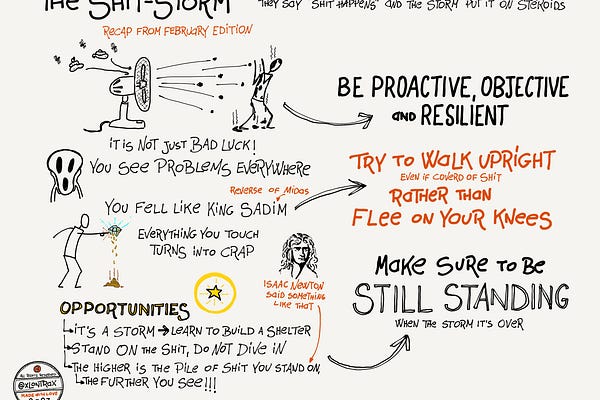 THE SHIT-STORM
THEY SAY "SHIT HAPPENS" AND THE STORM PUT IT ON STEROIDS
RECAP FROM FEBRUARY EDITION
BE PROACTIVE, OBJECTIVE
AND RESILIENT
IT IS NOT JUST BAD LUCK!
YOU SEE PROBLEMS EVERYWHERE
TRY TO WALK UPRIGHT
EVEN IF COVERD OF SHIT
RATHER THAN
FLEE ON YOUR KNEES
REVERSE OF MIDAS
YOU FELL LIKE KING SADIM
EVERYTHING YOU TOUCH
TURNS INTO CRAP
ISAAC NEWTON
SAID SOMETHING
LIKE THAT
MAKE SURE TO BE
STILL STANDING
WHEN THE STORM IT'S OVER
OPPORTUNITIES
IT'S A STORM → LEARN TO BUILD A SHELTER
STAND ON THE SHIT, DO NOT DIVE IN
THE HIGHER IS THE PILE OF SHIT YOU STAND ON,
THE FURTHER YOU SEE!!!
ALL RIGHTS RESERVED
@XLONTRAX
MADE WITH LOVE
2023